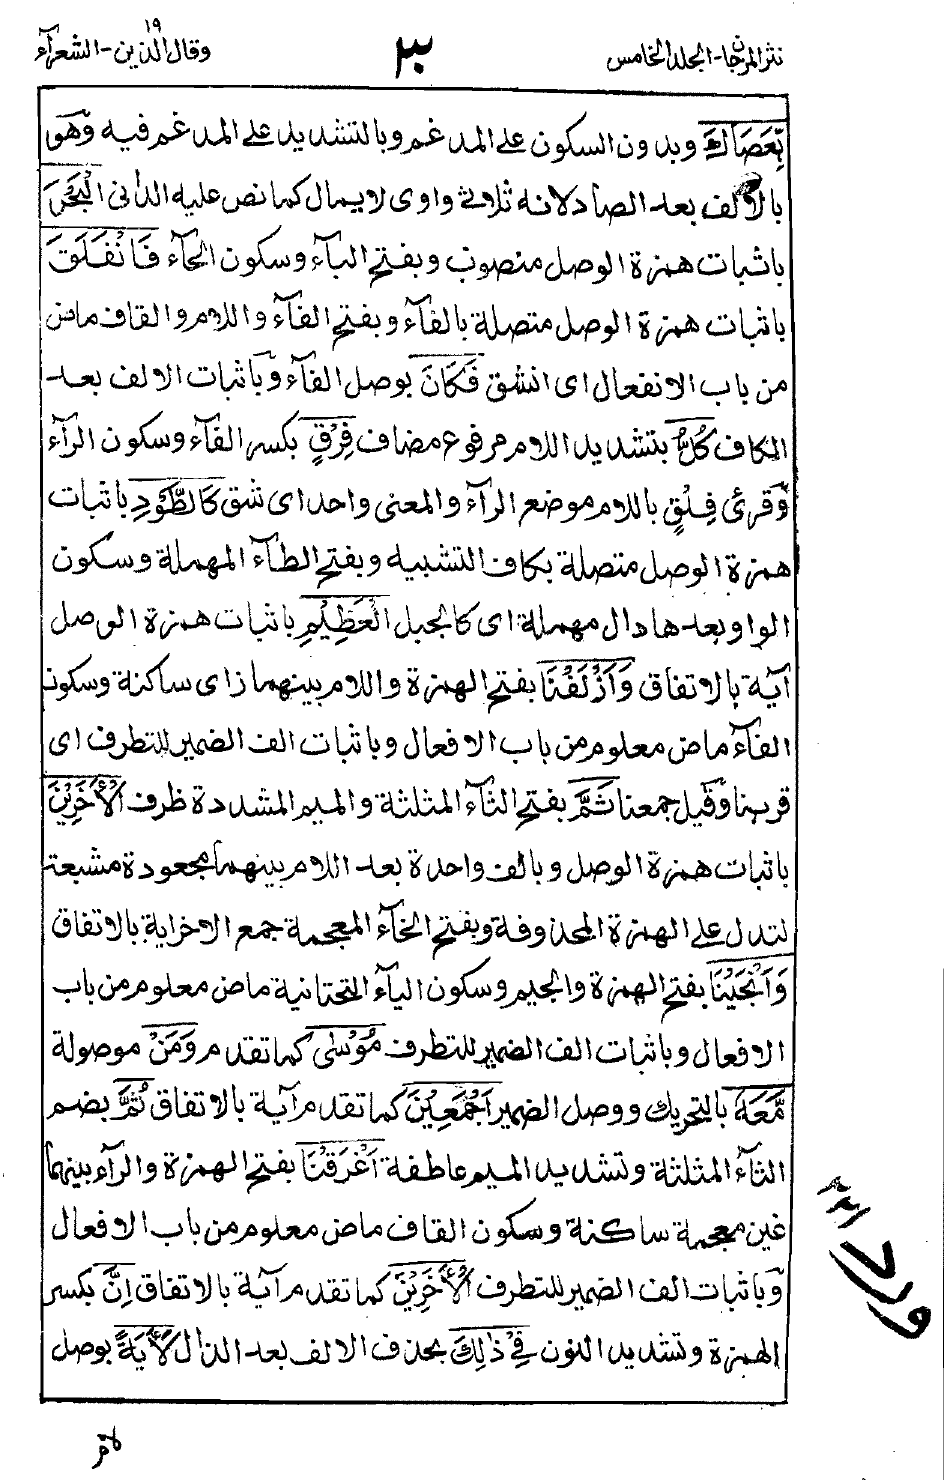 نثر المرجان-المجلد الخامس
٣٠
وقال الذين ١٩-الشعرآء
بِّعَصَاكَ وبدون السكون على المدغم وبالتشديد على المدغم فيه وَّهو
بالالف بعد الصاد لانه ثلاثى واوى لا يمال كما نص عليه الدانى الْبَحْرَ
باثبات همزة الوصل منصوب وبفتح البآء وسكون الحآء فَانْفَلَقَ
باثبات همزة الوصل متصلة بالفآء وبفتح الفآء واللام والقاف ماض
من باب الانفعال اى انشق فَكَانَ بوصل الفآء وَّباثبات الالف بعد
الكاف كُلُّ بتشديد اللام مرفوع مضاف فِرْقٍ بكسر الفآء وسكون الرآء
وَّقرئ فِلْقٍ باللام موضع الرآء والمعنى واحد اى شق كَالطَّوْدِ باثبات
همزة الوصل متصلة بكاف التشبيه وبفتح الطآء المهملة وسكون
الواو بعدها دال مهملة اى كالجبل الْعَظِيْمِ باثبات همزة الوصل
آية بالاتفاق وَاَزْلَفْنَا بفتح الهمزة واللام بينهما زاى ساكنة وسكون
الفآء ماض معلوم من باب الافعال وباثبات الف الضمير للتطرف اى
قربنا وَّقيل جمعنا ثَمَّ بفتح الثآء المثلثة والميم المشددة ظرف الْاٰخَرِيْنَ
باثبات همزة الوصل وبالف واحدة بعد اللام بينهما مجعودة مشبعة
لتدل على الهمزة المحذوفة وبفتح الخآء المعجمة جمع الاخر اية بالاتفاق
وَاَنْجَيْنَا بفتح الهمزة والجيم وسكون اليآء التحتانية ماض معلوم من باب
الافعال وباثبات الف الضمير للتطرف مُوْسٰى كما تقدم وَمَنْ موصولة
مَّعَهٗ بالتحريك ووصل الضمير اَجْمَعِيْنَ كما تقدم آية بالاتفاق ثُمَّ بضم
الثآء المثلثة وتشديد الميم عاطفة اَغْرَقْنَا بفتح الهمزة والرآء بينهما
غين معجمة ساكنة وسكون القاف ماض معلوم من باب الافعال
وَّباثبات الف الضمير للتطرف الْاٰخَرِيْنَ كما تقدم آية بالاتفاق اِنَّ بكسر
الهمزة وتشديد النون فِيْ ذٰلِكَ بحذف الالف بعد الذال لَاٰيَةً بوصل